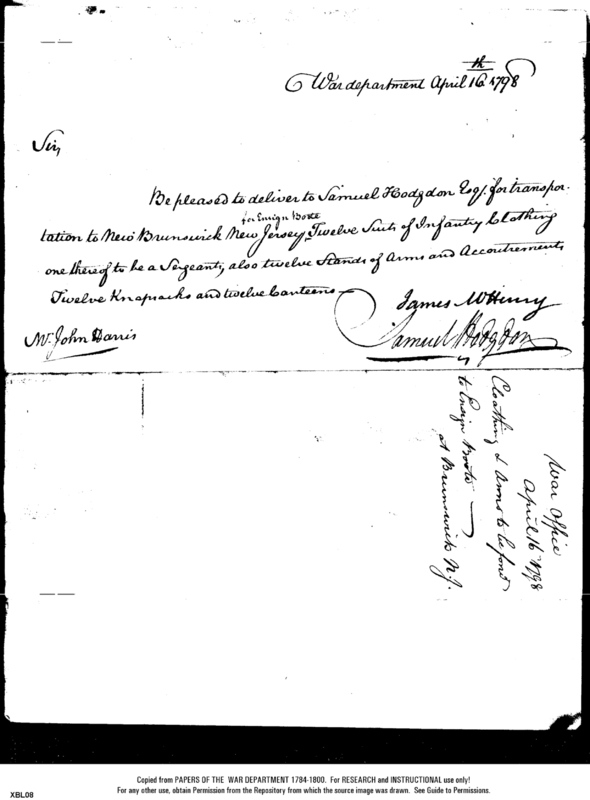 War department April 16th 1798
Sir,
Be pleased to deliver to Samuel Hodgdon Esqr. for transpor-
for Ensign Boote
tation to New Brunswick New Jersey, Twelve Suits of Infantry Clothing
one thereof to be a Sergeants, also twelve Stands of Arms and Accoutrements
Twelve Knapsacks and twelve Canteens —
James McHenry
Samuel Hodgdon
Mr. John Harris
War Office
April 16 1798
Cloathing & Arms to be
to Ensign Boote —
at Brunswick N.J.
Copied from PAPERS OF THE WAR DEPARTMENT 1784-1800. For RESEARCH and INSTRUCTIONAL use only!
For any other use, obtain Permission from the Repository from which the source image was drawn. See Guide to Permissions.
XBL08